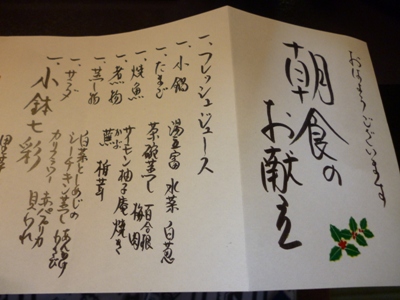 おはようございます
朝食の
お献立
一、フレッシュジュース
一、小鍋 湯豆富 水菜 白葱
一、たまご 茶碗蒸し 百合根 梅肉
一、焼魚 サーモン柚子庵焼き
一、煮物 かぶ 蕪 椎茸
一、蒸し物 白菜としめじの シーチキン蒸し
一、サラダ カリフラワー 赤パプリカ
小鉢七彩 貝られ